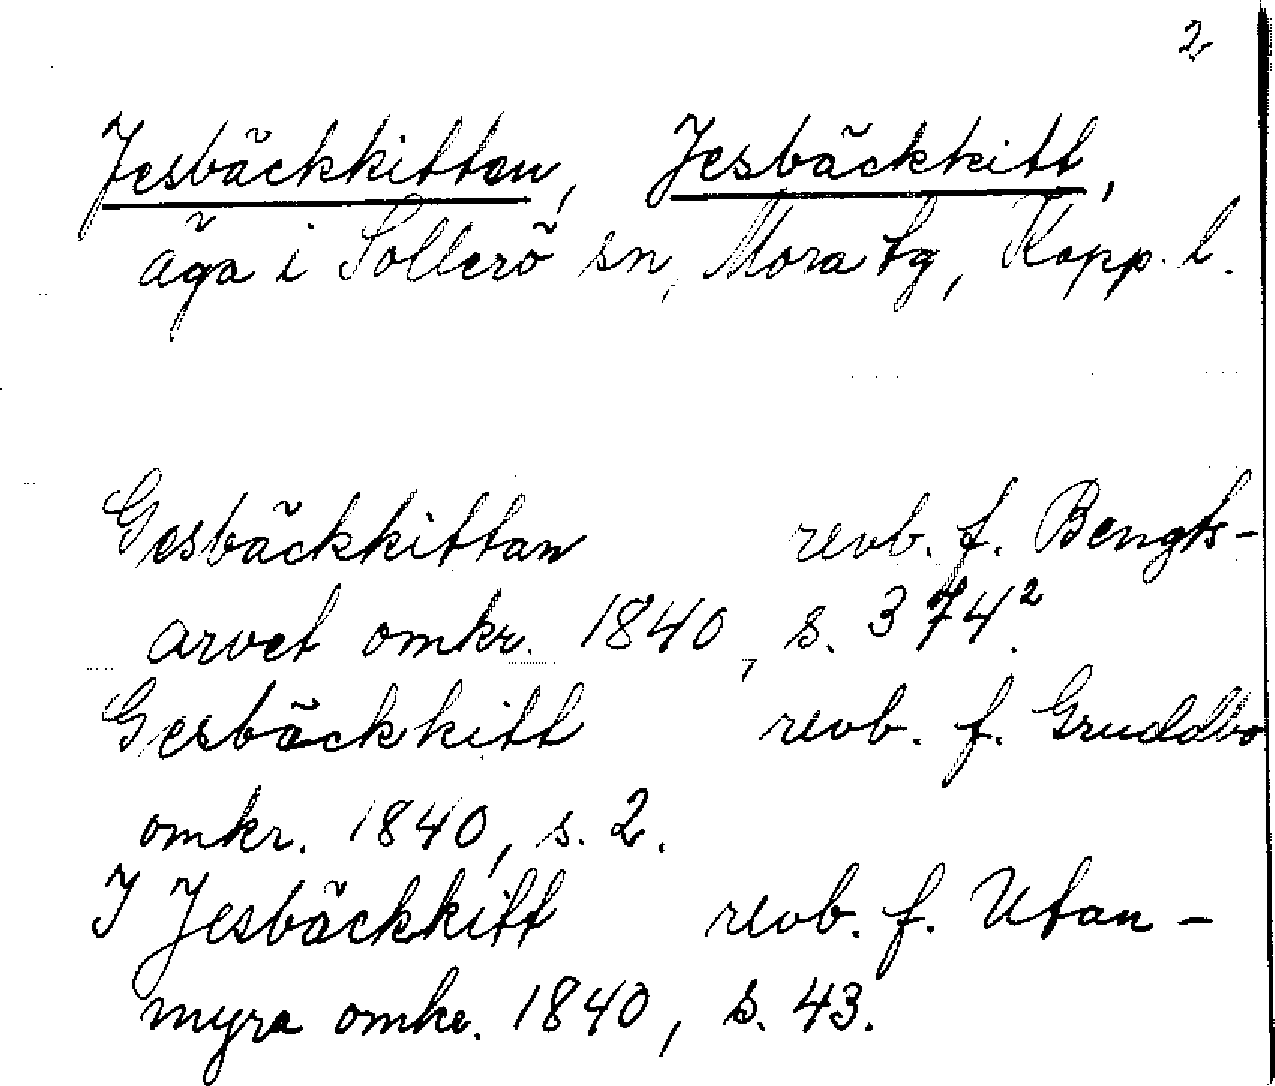 2
Jesbäckkittan, Jesbäckkitt,
äga i Sollerö sn, Mora tg, Kopp. l.
Gesbäckkittan revb. f. Bengts-
arvet omkr. 1840, s. 374².
Gesbäckkitt revb. f. Gruddbo
omkr. 1840, s. 2.
I Jesbäckkitt revb. f. Utan-
myra omkr. 1840, s. 43.